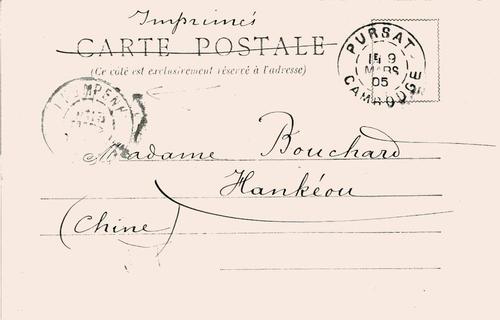 Imprimés
CARTE POSTALE
(Ce côté est exclusivement réservé à l'adresse)
PURSAT
9
MARS
05
CAMBODGE
Madame Bouchard
Hankéou
(Chine)